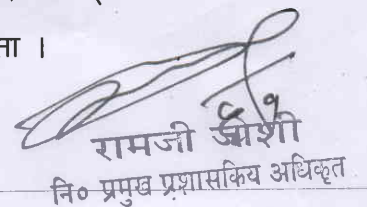 ा ।
रामजी जोशी
नि० प्रमुख प्रशासकिय अधिकृत